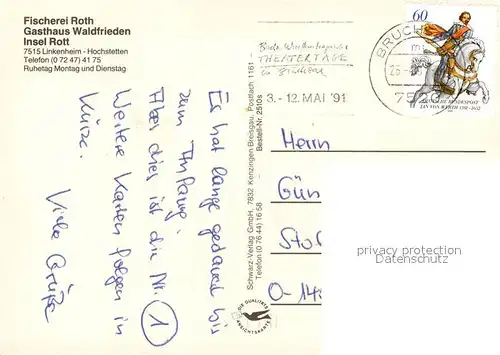 Fischerei Roth
Gasthaus Waldfrieden
Insel Rott
7515 Linkenheim - Hochstetten
Telefon (0 72 47) 41 75
Ruhetag Montag und Dienstag
Es hat lange gedauert bis
zum Anfang.
Aber dies ist die Nr. 1
Weitere Karten folgen in
Kürze.
Viele Grüße
Schwarz-Verlag GmbH, 7832 Kenzingen Breisgau, Postfach 1161
Telefon (0 76 44) 16 58
Bestell-Nr. 2510s
DIE QUALITÄTS
ANSICHTSKARTE
THEATERTAGE
in Bruchsal
3.-12. MAI '91
BRUCHS
75
60
DEUTSCHE BUNDESPOST
JAN VON WERTH 1591-1652
Herrn
Gün
Stol
O-14
privacy protection
Datenschutz